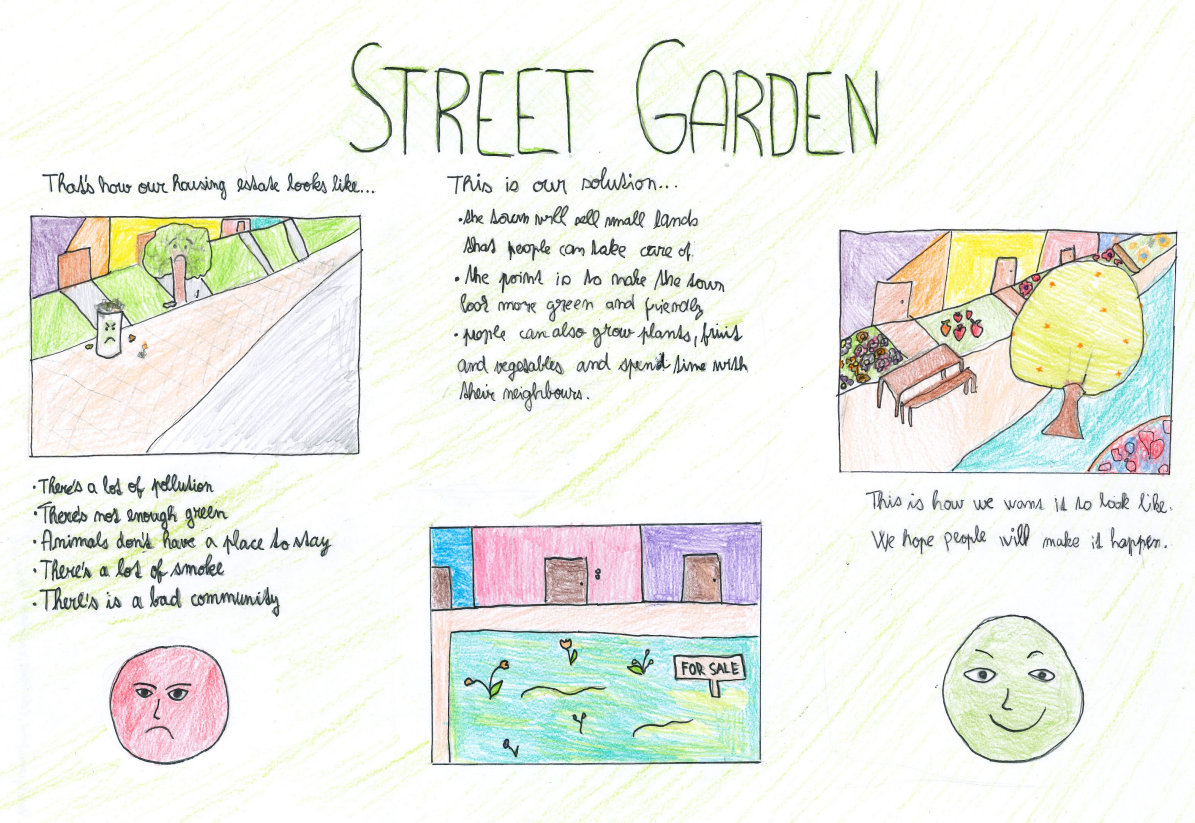 STREET GARDEN
That's how our housing estate looks like...
• There's a lot of pollution
• There's not enough green
• Animals don't have a place to stay
• There's a lot of smoke
• There's is a bad community
This is our solution...
• the town will sell small lands
that people can take care of.
• the point is to make the town
look more green and friendly
• people can also grow plants, fruit
and vegetables and spend time with
their neighbours.
FOR SALE
This is how we want it to look like.
We hope people will make it happen.